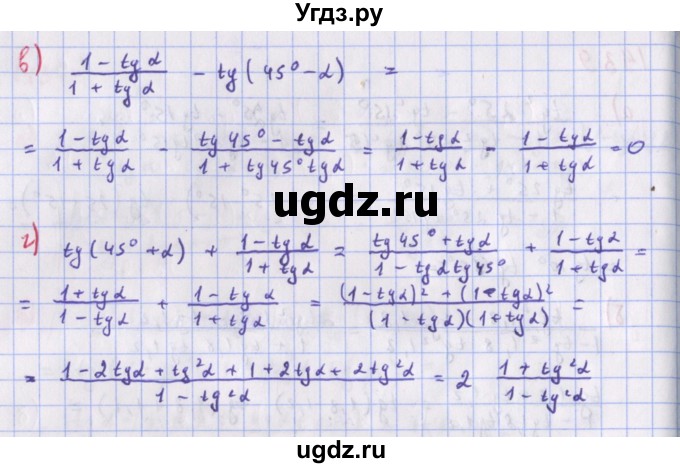 Угдз.ру
в) (1 - tg α)/(1 + tg α) - tg(45° - α) =
= (1 - tgα)/(1 + tgα) - (tg45° - tgα)/(1 + tg45° tgα) = (1 - tgα)/(1 + tgα) - (1 - tgα)/(1 + tgα) = 0
г) tg(45° + α) + (1 - tgα)/(1 + tgα) = (tg45° + tgα)/(1 - tgα tg45°) + (1 - tgα)/(1 + tgα) =
= (1 + tgα)/(1 - tgα) + (1 - tgα)/(1 + tgα) = ((1 - tgα)² + (1 + tgα)²)/((1 - tgα)(1 + tgα)) =
= (1 - 2tgα + tg²α + 1 + 2tgα + 2tg²α)/(1 - tg²α) = 2 (1 + tg²α)/(1 - tg²α)
ugdz.ru
ugdz.ru